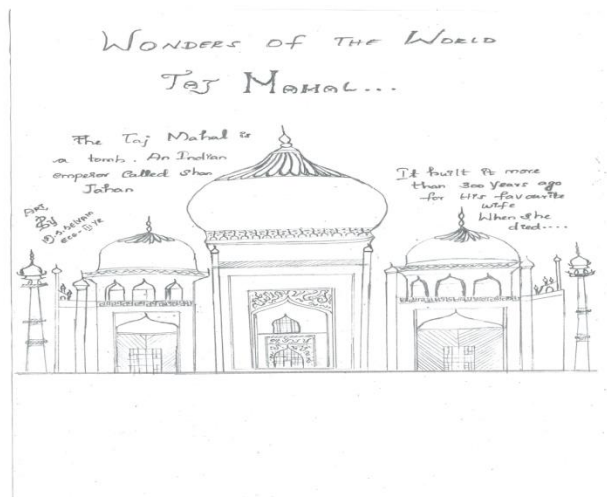 WONDERS OF THE WORLD
TAJ MAHAL...
The Taj Mahal is
a tomb. An Indian
emperor called Shan
Jahan
It built it more
than 300 years ago
for His favourite
wife
When she
died....
Art
By